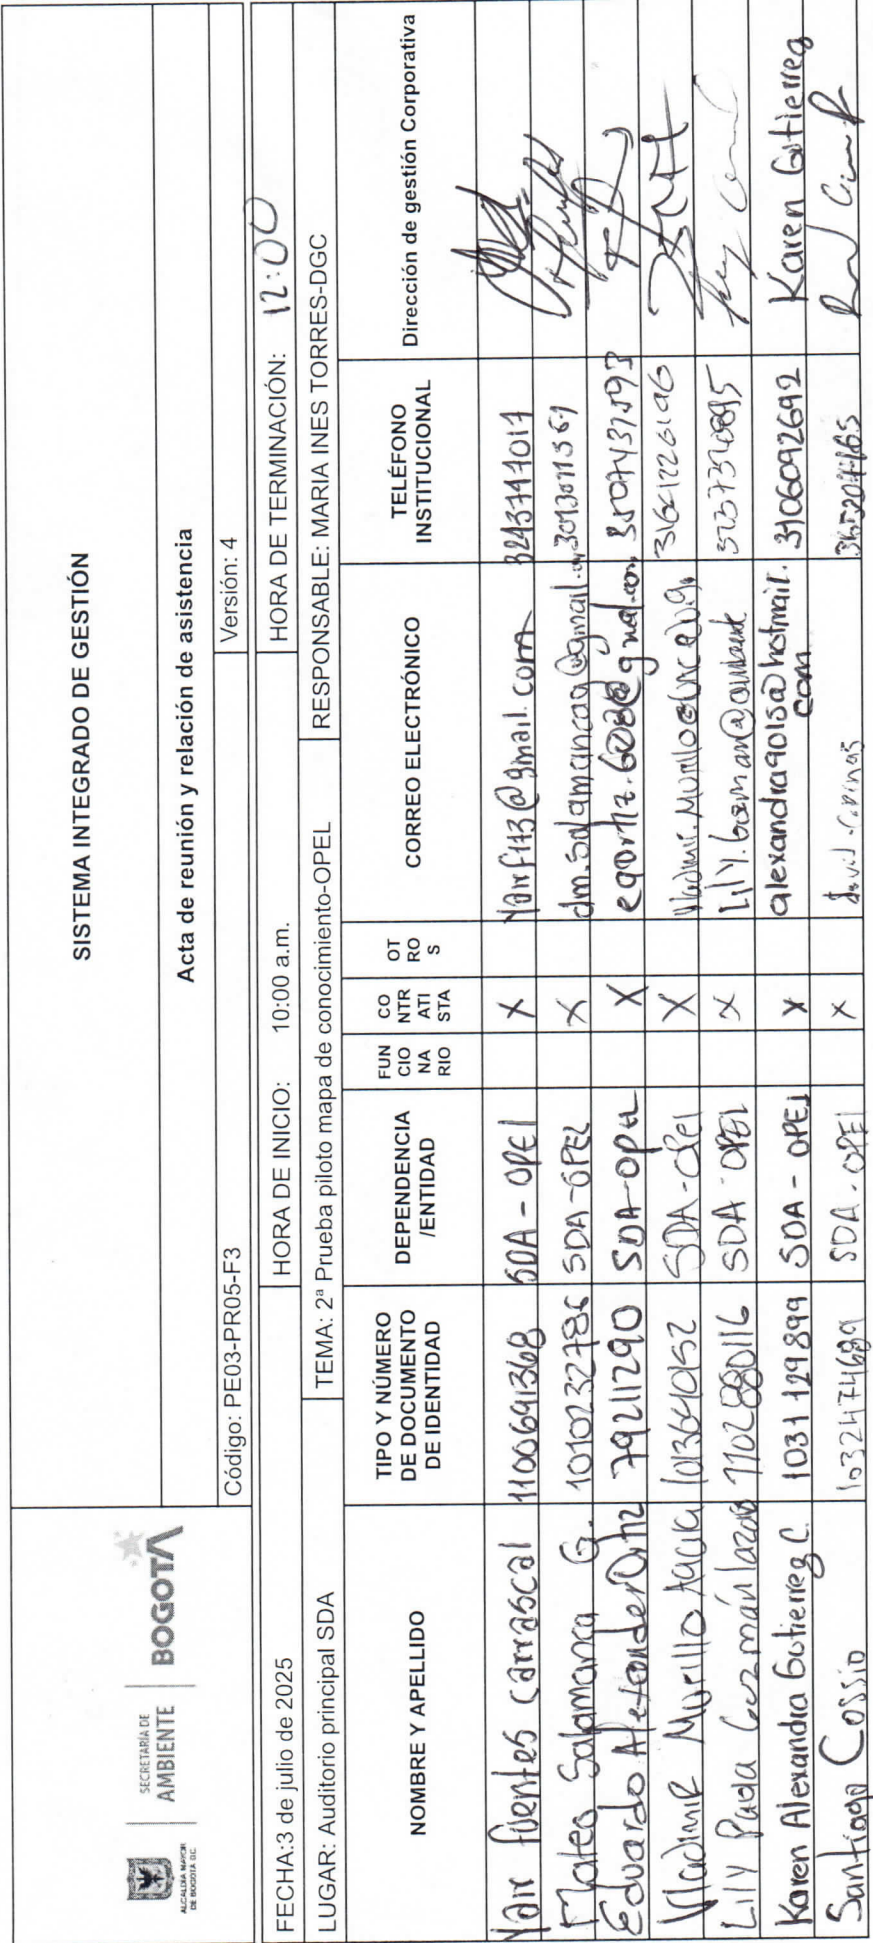 ALCALDÍA MAYOR
DE BOGOTÁ D.C.
SECRETARÍA DE
AMBIENTE
BOGOTÁ
SISTEMA INTEGRADO DE GESTIÓN
Acta de reunión y relación de asistencia
Código: PE03-PR05-F3 Versión: 4
FECHA:3 de julio de 2025 HORA DE INICIO: 10:00 a.m. HORA DE TERMINACIÓN: 12:00
LUGAR: Auditorio principal SDA TEMA: 2ª Prueba piloto mapa de conocimiento-OPEL RESPONSABLE: MARIA INES TORRES-DGC
NOMBRE Y APELLIDO
TIPO Y NÚMERO
DE DOCUMENTO
DE IDENTIDAD
DEPENDENCIA
/ENTIDAD
FUN
CIO
NA
RIO
CO
NTR
ATI
STA
OT
RO
S
CORREO ELECTRÓNICO
TELÉFONO
INSTITUCIONAL
Dirección de gestión Corporativa
Yair fuentes carrascal 1100691368 SDA - OPEl X Yairf173@gmail.com
Mateo Salamanca G. 1010232786 SDA-OPEL X
Eduardo Alexander Ortiz 79211290 SDA-OPEL X
Vladimir Murillo 1013640152 SDA-OPEl X
Lily Paola Guzmán 1102880116 SDA-OPEL X
Karen Alexandra Gutierrez C. 1031129899 SDA - OPEL X alexandra9015@hotmail.
com 3106092692 Karen Gutierrez
Santiago Cossio 1032474689 SDA-OPEl X